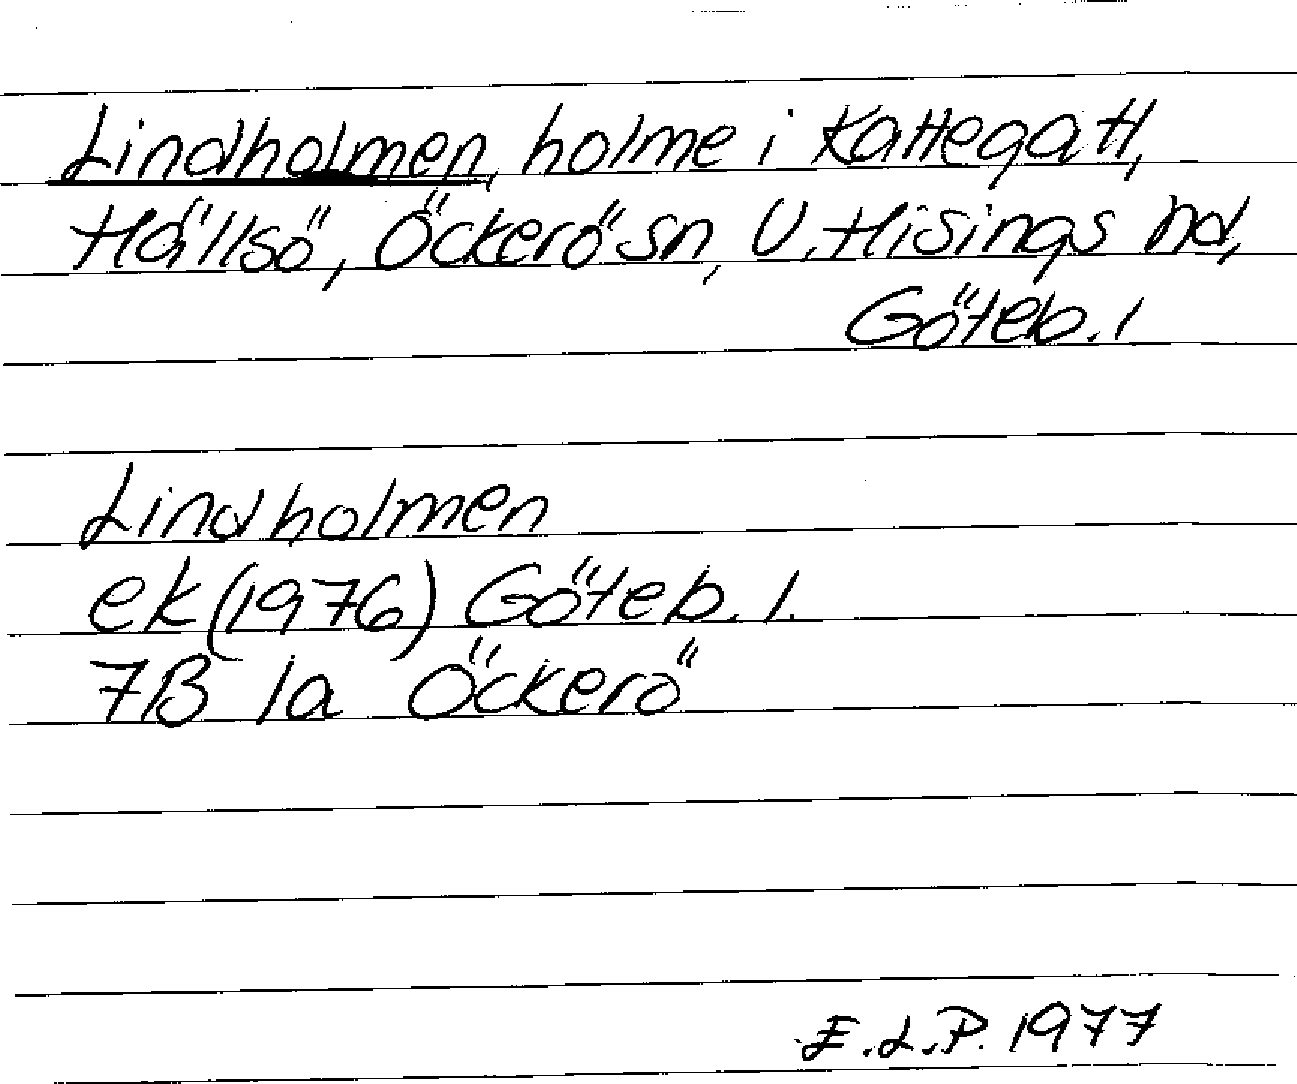 Lindholmen, holme i Kattegatt,
Hällsö, Öckerö sn, V. Hisings hd,
Göteb. l
Lindholmen
ek (1976) Göteb. l.
7B 1a Öckerö
E.L.P. 1977